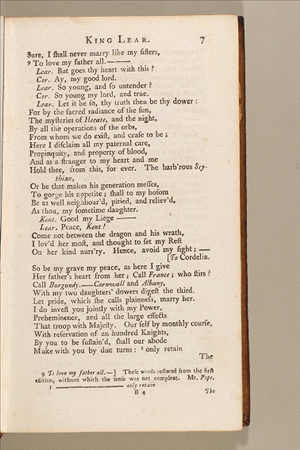 KING LEAR. 7
Sure, I ſhall never marry like my ſiſters,
9 To love my father all. ———
Lear. But goes thy heart with this?
Cor. Ay, my good lord.
Lear. So young, and ſo untender?
Cor. So young my lord, and true.
Lear. Let it be ſo, thy truth then be thy dower:
For by the ſacred radiance of the ſun,
The myſteries of Hecate, and the night,
By all the operations of the orbs,
From whom we do exiſt, and ceaſe to be;
Here I diſclaim all my paternal care,
Propinquity, and property of blood,
And as a ſtranger to my heart and me
Hold thee, from this, for ever. The barb'rous Scy-
thian,
Or he that makes his generation meſſes,
To gorge his appetite; ſhall to my boſom
Be as well neighbour'd, pitied, and reliev'd,
As thou, my ſometime daughter.
Kent. Good my Liege ———
Lear. Peace, Kent!
Come not between the dragon and his wrath,
I lov'd her moſt, and thought to ſet my Reſt
On her kind nurs'ry. Hence, avoid my ſight; —
[To Cordelia.
So be my grave my peace, as here I give
Her father's heart from her; Call France; who ſtirs?
Call Burgundy.—Cornwall and Albany,
With my two daughters' dowers digeſt the third.
Let pride, which ſhe calls plainneſs, marry her.
I do inveſt you jointly with my Power,
Preheminence, and all the large effects
That troop with Majeſty. Our ſelf by monthly courſe,
With reſervation of an hundred Knights,
By you to be ſuſtain'd, ſhall our abode
Make with you by due turns: ¹ only retain
The
9 To love my father all.—] Theſe words reſtored from the firſt
edition, without which the ſenſe was not compleat. Mr. Pope.
1 ——— only retain
B 4 The